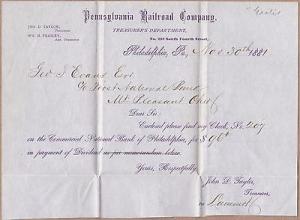 Pennsylvania Railroad Company,
TREASURER'S DEPARTMENT,
No. 233 South Fourth Street
JNO. D. TAYLOR,
Treasurer
Philadelphia, Pa., Nov 30th 1881
Geo J. Evans Esq
c/o First National Bank
Mt Pleasant Ohio
Dear Sir:
Enclosed please find my Check, No. 207
on the Commercial National Bank of Philadelphia, for $96
in payment of Dividend as per memorandum below.
Yours, Respectfully,
John D. Taylor,
Treasurer,